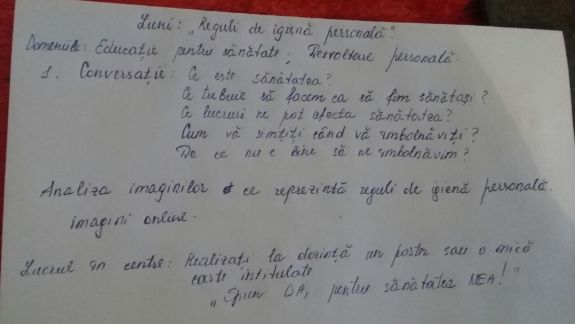 Luni: „Reguli de igienă personală".
Domeniile: Educație pentru sănătate; Dezvoltare personală.
1. Conversație: Ce este sănătatea?
Ce trebuie să facem ca să fim sănătași?
Ce lucruri ne pot afecta sănătatea?
Cum vă simțiți când vă îmbolnăviți?
De ce nu e bine să ne îmbolnăvim?
Analiza imaginilor ce reprezintă reguli de igienă personală.
imagini online.
Lucrul în centre: Realizați la dorință un poster sau o mică
carte intitulate
„Spun DA, pentru sănătatea MEA!"